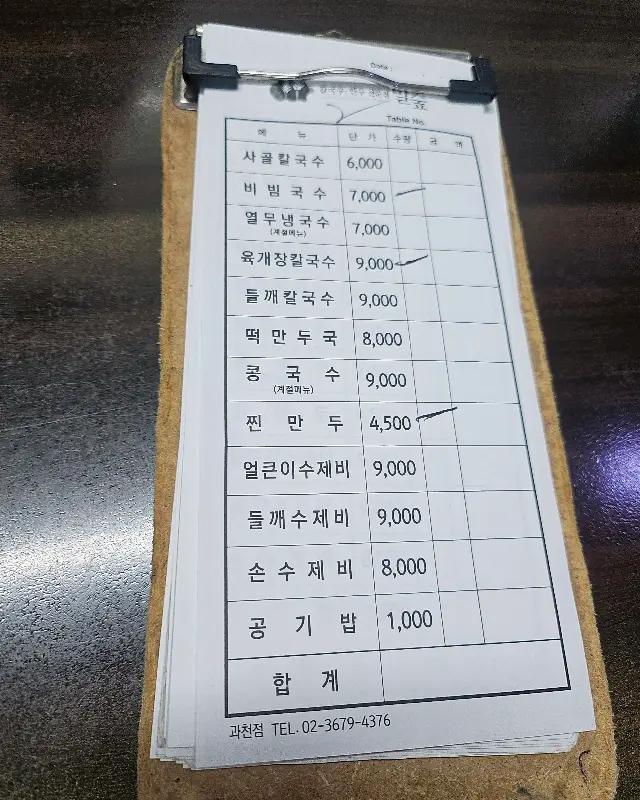 Date :
Table No.
메 뉴 단 가 수량 금 액
사골칼국수 6,000
비빔국수 7,000
열무냉국수 7,000
(계절메뉴)
육개장칼국수 9,000
들깨칼국수 9,000
떡만두국 8,000
콩국수 9,000
(계절메뉴)
찐만두 4,500
얼큰이수제비 9,000
들깨수제비 9,000
손수제비 8,000
공기밥 1,000
합계
과천점 TEL. 02-3679-4376